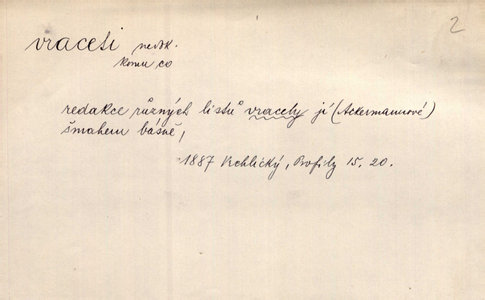 2
vraceti nedok.
komu co
redakce různých listů vracely jí (Ackermannové)
šmahem básně,
1887 Vrchlický, Profily 15. 20.